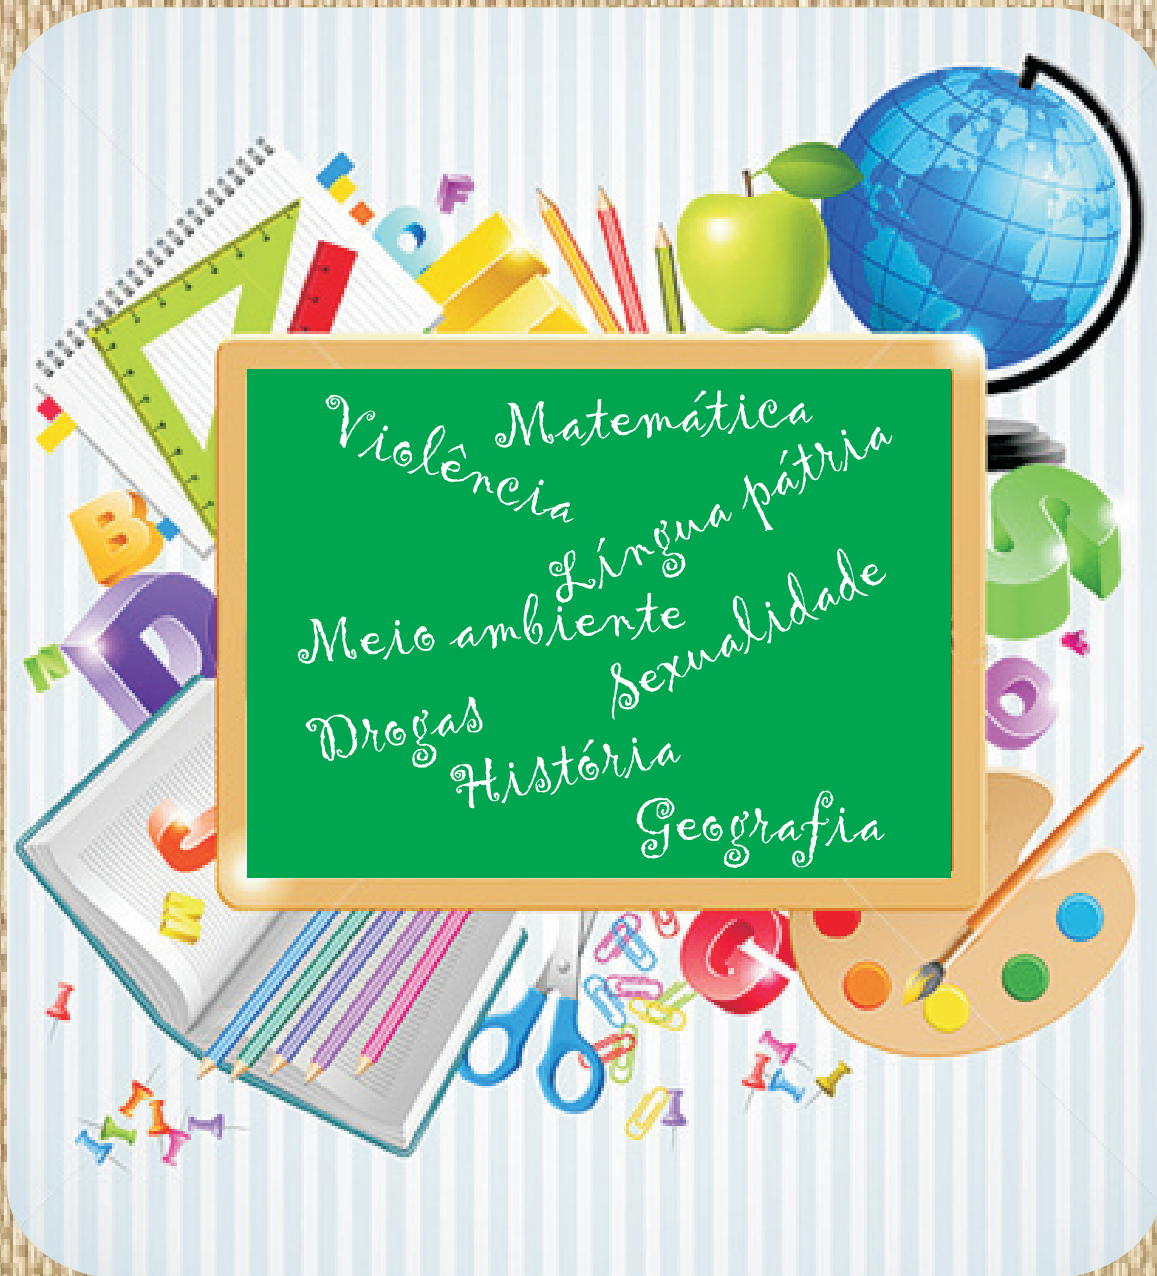 Violência
Matemática
Língua pátria
Meio ambiente
Sexualidade
Drogas
História
Geografia
F
B
D
N
S
J
M